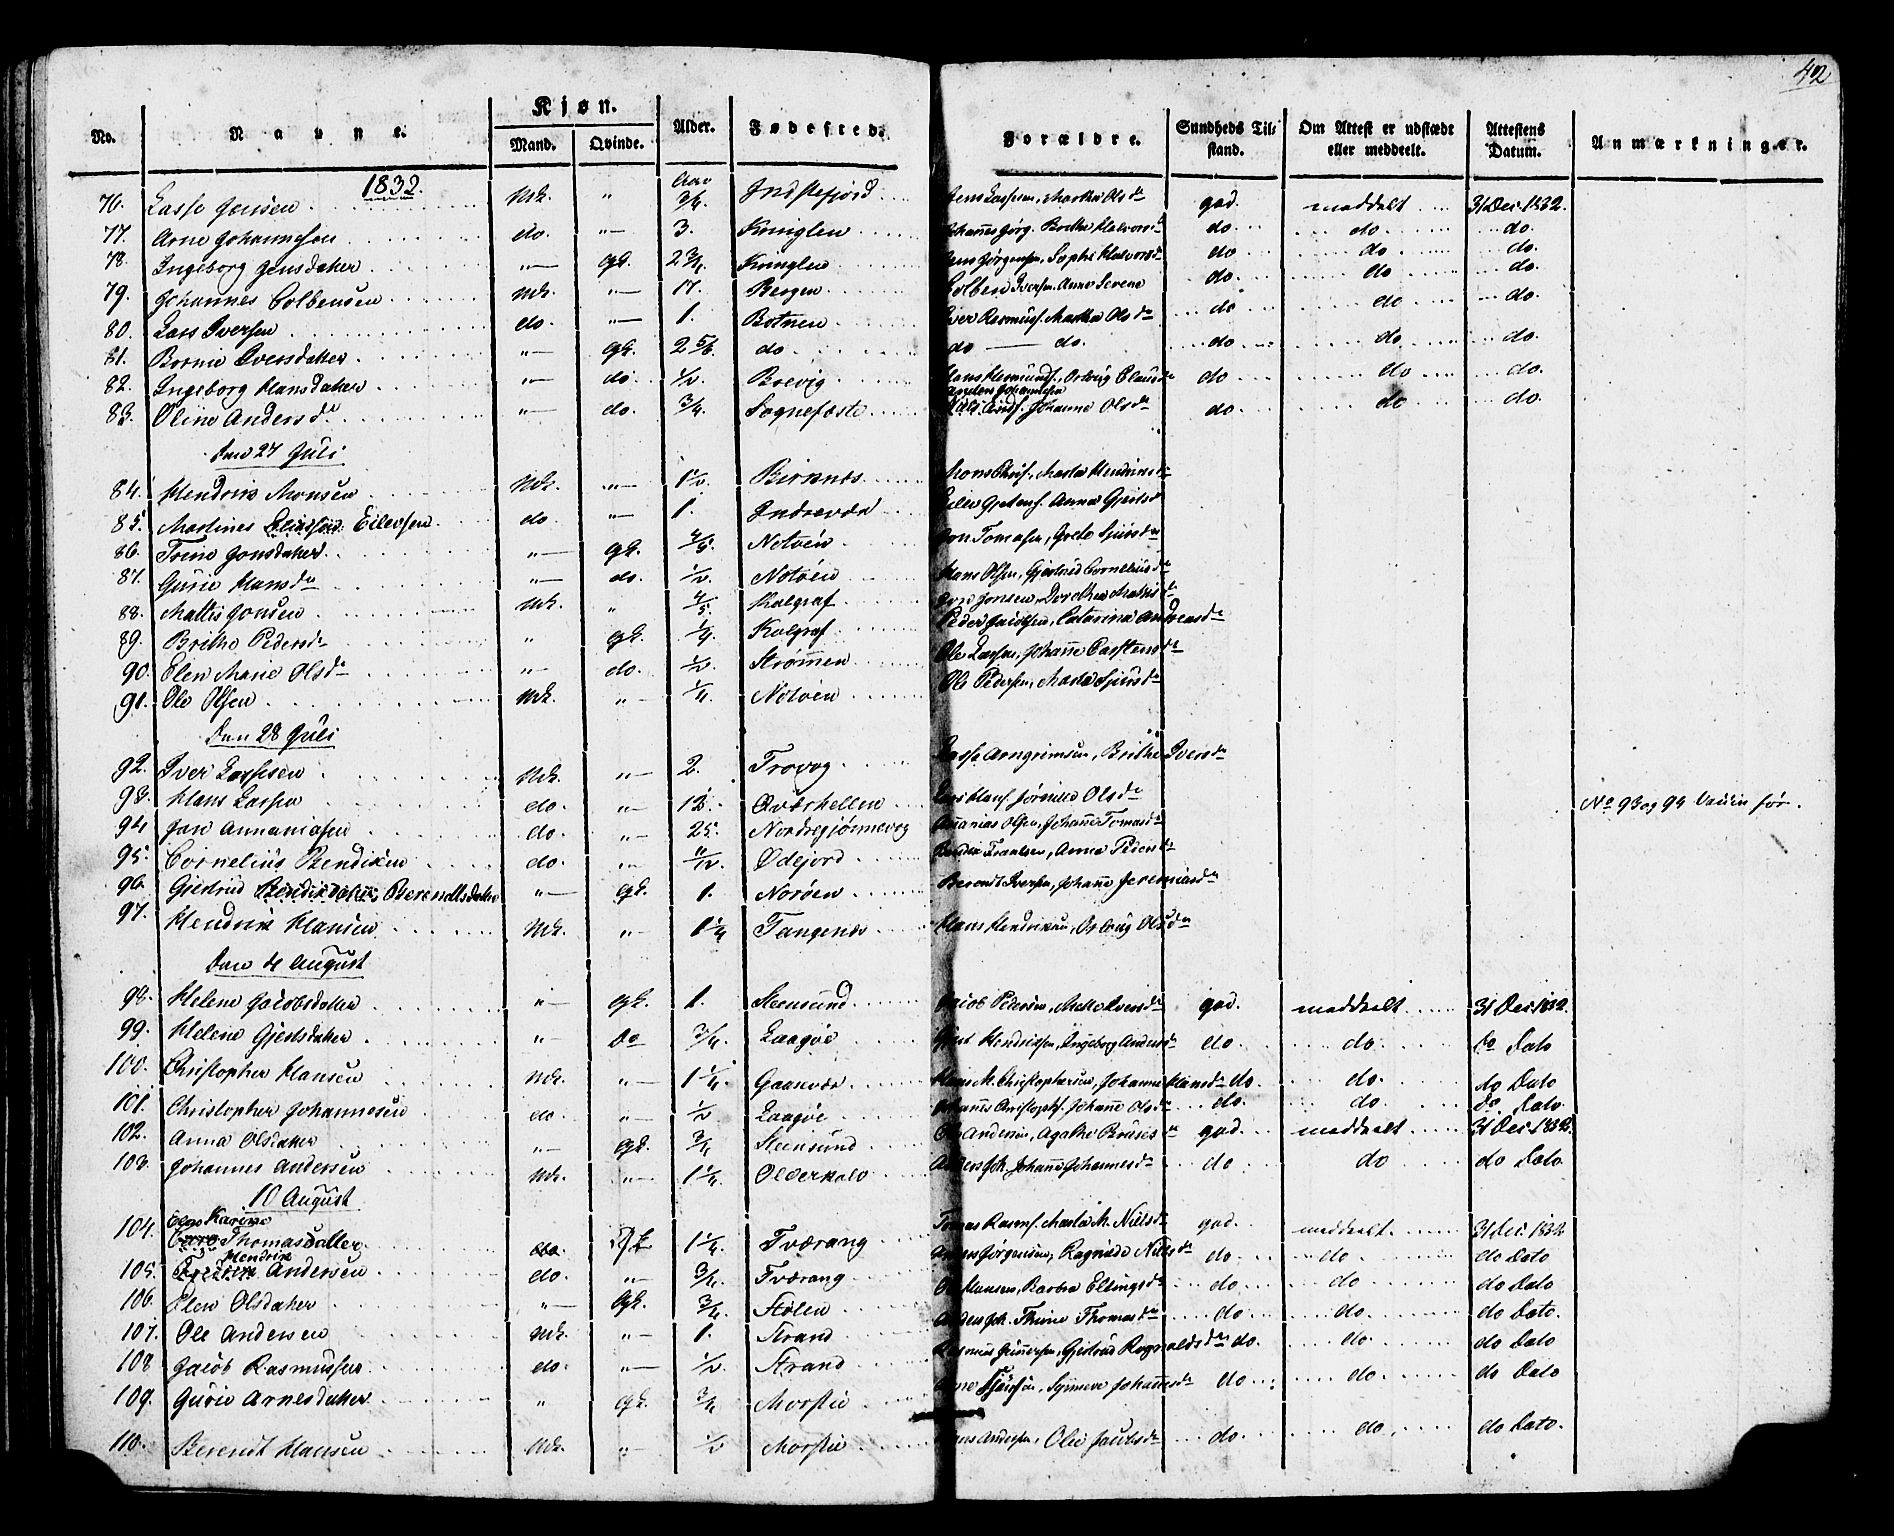 42
No. Navne. Kjøn. Mand. Qvinde. Alder. Fødested. Forældre. Sundheds Tilstand. Om Attest er udstædt eller meddeelt. Attestens Datum. Anmærkninger.
1832. Aar
76. Lasse Jensen Mk. " 3/4 Indstefjord Jens Lassesen, Martha Olsd. god. meddelt 31 Dec. 1832.
77. Arne Johannessen do. " 3. Kringlen Johannes Jørg. Brethe Halvorsd. do do. do.
78. Ingeborg Jensdatter " Qk. 2 3/4 Kringlen Jens Jørgensen, Sophi Halvorsd. do do. do.
79. Johannes Colbensen Mk. " 17. Bergen Colben Iversen Anne Serene do. do do.
80. Lars Iversen do. " 1. Botnen Iver Rasmusf. Martha Olsd. do do do.
81. Iversdatter " Qk. 2 5/6 do. do do. do do do.
82. Ingeborg Hansdatter " do. 1/2. Brevig Hans do do do.
83. Oline Andersd. " do. 3/4. Sognefæste Johanne Olsd. do. do do.
Den 27 Juli
84. Hendrik Monsen Mk. " 1 1/2. Birknes Mons
85. Martines Eilevsen do. " 1. Indrevær Eilev Anna Gjertsd.
86. Trine Jonsdatter " Qk. 4/5. Notøen Jon Tomasen, Grete Sjursd.
87. Gurie Hansd. " do. 1/2. Notøen Hans Olsen, Gjertrud Corneliusd.
88. Mattis Jonsen Mk. " 4/5. Kalgraf Jon Jonsen, Dorthea Mattisd.
89. Brithe Pedersd. " Qk. 1/4. Kalgraf Peder Jacobsen, Catarina Andreasd.
90. Elen Marie Olsd. " do. 1/2. Strømmen Ole Larsen, Johanne Carstensd.
91. Ole Olsen Mk. " 1/4. Notøen Ole Pedersen, Marta Sjursd.
Den 28 Juli
92. Iver Lassesen Mk. " 2. Trovog Lasse Arngrimsen, Brithe Iversd.
93. Hans Larsen do. " 12. Qværhellen Lars Hansf. Olsd. No 93 og 94 før.
94. Jan Annaniasen do. " 25. Nordregjønnevog Ananias Olsen, Johanne Tomasd.
95. Cornelius Bendiksen do. " 11/12. Ødejord Bendix Frantsen, Anna Pedersd.
96. Gjertrud Berendtsdatter " Qk. 1. Norøen Berendt Iversen, Johanne Jeremiasd.
97. Hendrik Hansen Mk. " 1 1/4 Tangenes Hans Hendriksen, Olsd.
Den 4 August
98. Helene Jacobsdatter " Qk. 1. Steensund Jacob Pedersen, Mette Iversd. god. meddeelt 31 Dec. 1832.
99. Helene Gjertsdatter " do 3/4. Laagøe Gjert Hendriksen, Ingeborg Andersd. do. do. do Dato
100. Christopher Hansen Mk. " 1 1/4. Gaasvær Hans M. Christophersen, Johanne Hansd. do. do. do Dato
101. Christopher Johannesen do. " 1/2 Laagøe Johannes Christophf. Johanne Olsd. do. do. do Dato.
102. Anna Olsdatter " Qk. 3/4 Steensund Ole Andersen, Agathe god. meddeelt 31 Dec. 1832.
103. Johannes Andersen Mk. " 1 1/4. Olderkalv Anders Joh. Johanne Johannesd. do do do Dato.
10 August
104. Karine Thomasdatter Qk 1 1/4. Tværang Tomas Rasmf. Marta M. Nielsd. god. meddeelt. 31 Dec. 1832
105. Hendrik Andersen do. " 3/4. Tværang Anders Jørgensen, Ragnilde Nielsd. do. do. do Dato
106. Elen Olsdatter " Qk. 3/4. Stølen Ole Hansen, Barbra Ellingsd. do. do. do Dato
107. Ole Andersen Mk. " 1. Strand Anders Joh. Thrine Thomasd. do. do. do Dato.
108 Jacob Rasmussen do. " 1/2 Strand Rasmus Gjertrud Ragnvaldsd. do. do. do Dato
109. Gurie Arnesdatter " Qk. 3/4 Morstie Arne Synneve Johannesd. do. do. do Dato
110. Berendt Hansen Mk. " 1/2 Morstie Hans Andersen, Olie Jacobsd. do. do. do Dato.